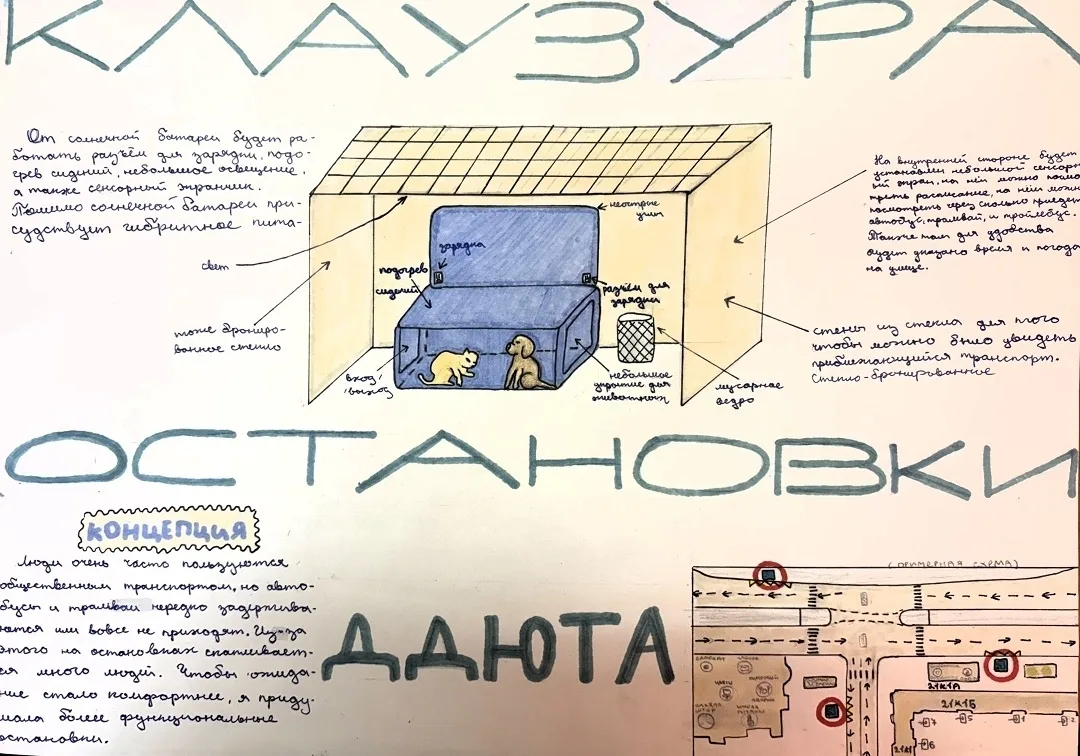 КЛАУЗУРА
От солнечной батареи будет ра-
ботать разъём для зарядки, подо-
грев сидений, небольшое освещение,
а также сенсорный экранчик.
Помимо солнечной батареи при-
судствует гибритное пита-
свет
тоже брониро-
ванное стекло
неострые
углы
зарядка
подогрев
сидений
разъём для
зарядки
вход
/выход
небольшое
укрытие для
животных
мусорное
ведро
На внутренней стороне будет
установлен небольшой сенсорн-
ый экран, на нём можно посмо-
треть расписание, на нём можн
посмотреть через сколько приедет
автобус, трамвай, и тройлебус.
Также там для удобства
будет указано время и погода
на улице.
стены из стекла для того
чтобы можно было увидеть
приближающийся транспорт.
Стекло-бронированное
ОСТАНОВКИ
КОНЦЕПЦИЯ
Люди очень часто пользуются
общественным транспортом, но авто-
бусы и трамваи нередко задержива-
ются или вовсе не приходят. Из-за
этого на остановках скапливает-
ся много людей. Чтобы ожида-
ние стало комфортнее, я приду-
мала более функциональные
остановки.
ДДЮТА
(ПРИМЕРНАЯ СХЕМА)
ЦВЕТЫ
21К1А
21К1Б
21К1
7
5
1
2
6